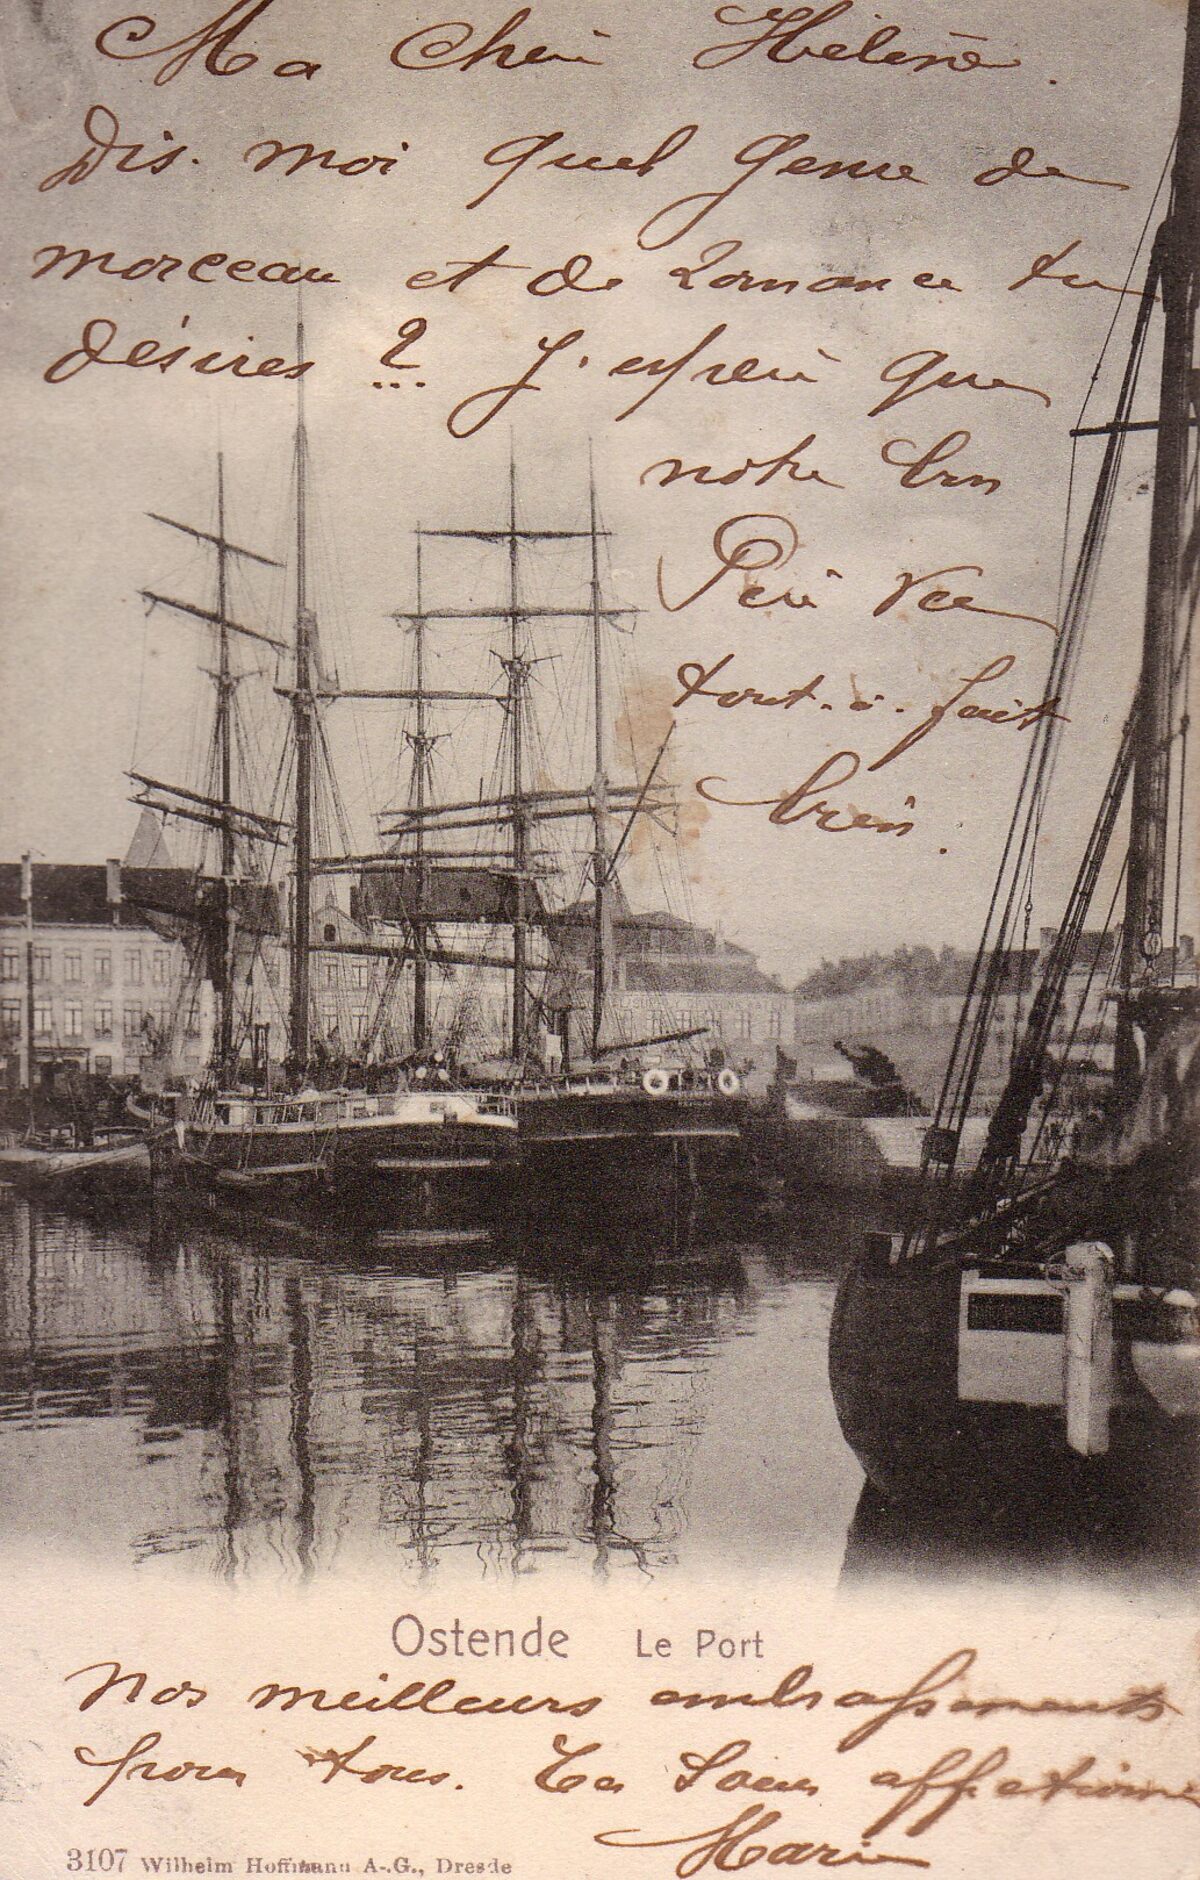 Ma Chère Hélène.
Dis-moi quel genre de
morceau et de romance tu
désires ? J'espère que
notre bon
Père va
tout-à-fait
bien.
Ostende Le Port
Nos meilleurs embrassements
pour tous. Ta Soeur affectionnée
Marie
3107 Wilhelm Hoffmann A.-G., Dresde